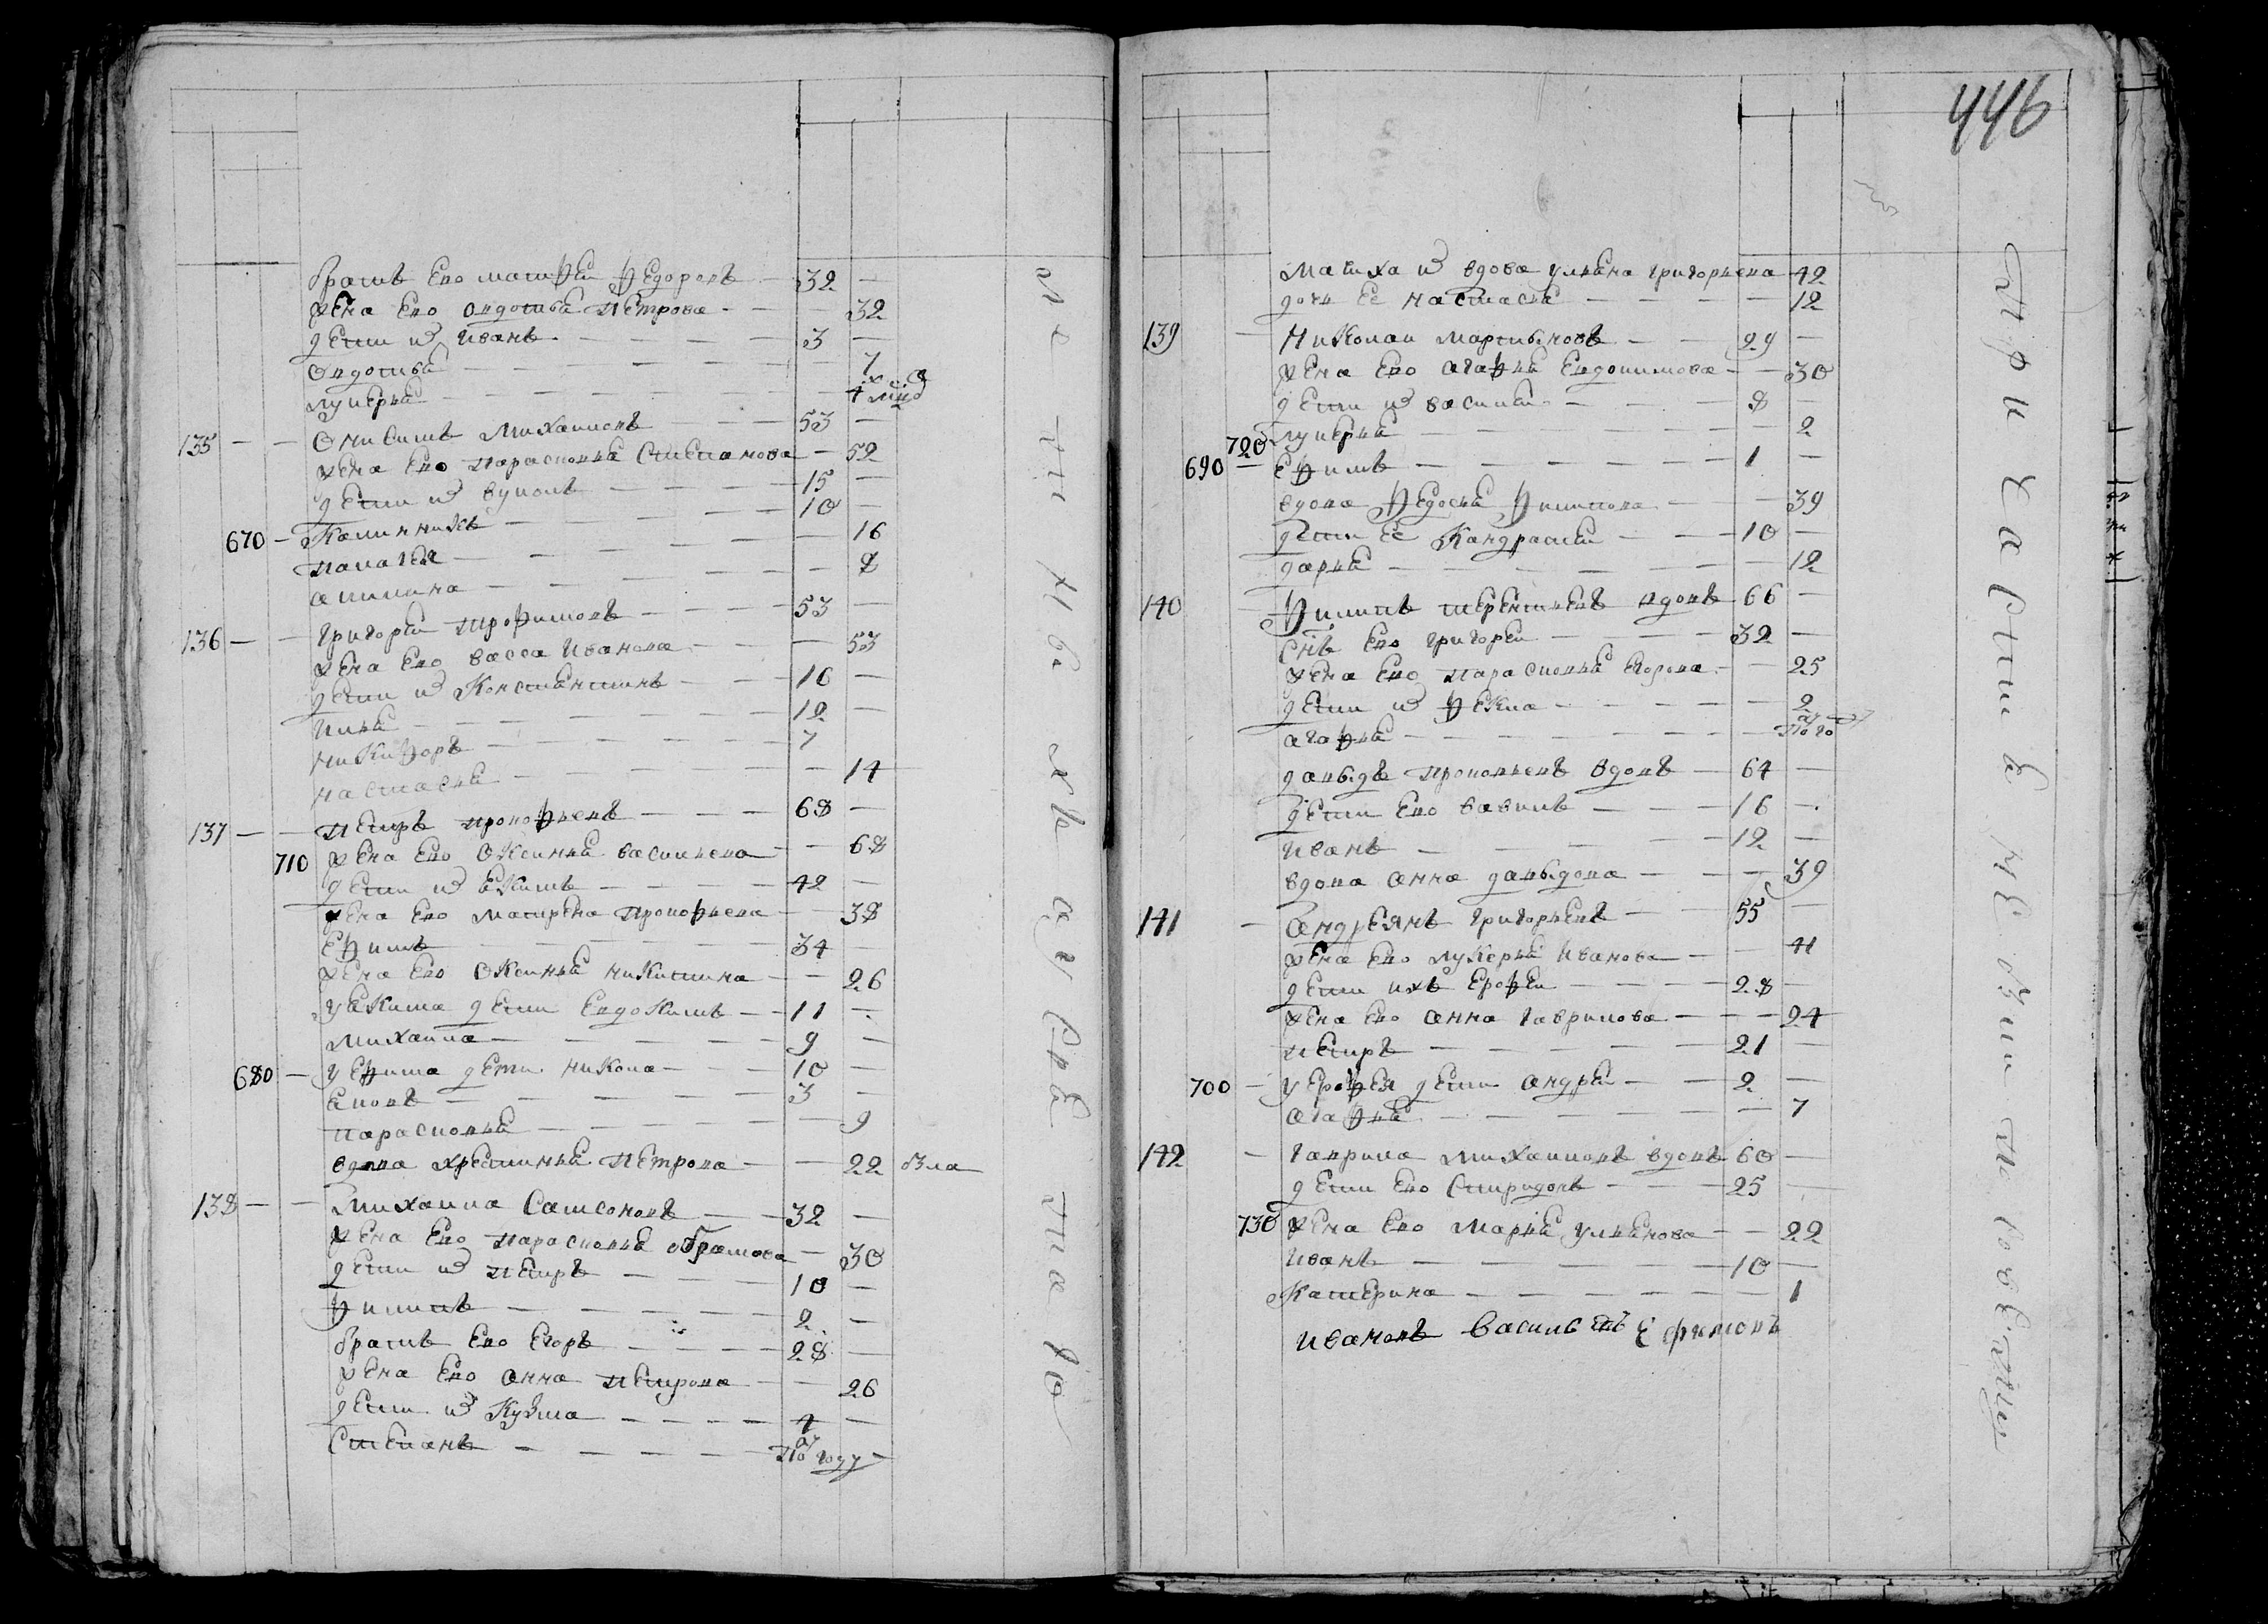 братъ ево матфеи федоровъ — 32 —
жена ево овдотья петрова — — 32
дети их иванъ — 3 —
овдотья — 7
лукерья — 4
135 — — онисимъ михаиловъ — 53 —
жена ево парасковья степанова — 52
дети их вуколъ — 15 —
670 — калинникъ — 10 —
палагея — 16
акилина — 8
136 — — григореи трофимовъ — 53 —
жена ево васса иванова — 53
дети их константинъ — 16 —
илья — 12 —
никифоръ — 7
настасья — 14
137 — — петръ прокофьевъ — 68 —
710 жена ево оксинья васильева — 68
дети их екимъ — 42 —
жена ево матрена прокофьева — 38
ефимъ — 34 —
жена ево оксинья никитина — 26
у екима дети евдокимъ — 11 —
михаила — 9 —
680 — у ефима дети никола — 10 —
— 3 —
парасковья — 9
вдова хрестинья петрова — 22 взла
138 — — михаила самсоновъ — 32 —
жена ево парасковья обрамова — 30
дети их петръ — 10 —
филипъ — 2 —
братъ ево егоръ — 28 —
жена ево анна петрова — 26
дети их кузма — 4 —
степанъ — по году —
446
мачиха их вдова ульяна григорьева — 42
дочь ее настасья — 12
139 — николаи мартыновъ — 29 —
жена ево агафья евдокимова — 30
дети их василеи — 8 —
720 лукерья — 2
690 — ефимъ — 1 —
вдова федосья филипова — 39
дети ее кандратеи — 10 —
дарья — 12
140 филипъ терентьевъ вдовъ 66 —
снъ ево григореи — 32 —
жена ево парасковья егорова — 25
дети их фекла — 2
агафья — по го
давыдъ прокопьевъ вдовъ — 64 —
дети ево вавилъ — 16 —
иванъ — 12 —
вдова анна давыдова — 39
141 — андреянъ григорьевъ — 55 —
жена ево лукерья иванова — 41
дети ихъ ерофеи — 28 —
жена ево анна гаврилова — 24
петръ — 21 —
700 — у ерофея дети андреи — 2 —
агафья — 7
142 — гаврила михаиловъ вдовъ 60 —
дети ево спиридонъ — 25 —
730 жена ево марья ульянова — 22
иванъ — 10 —
катерина — 1
ивановъ василь евъ ефимовъ